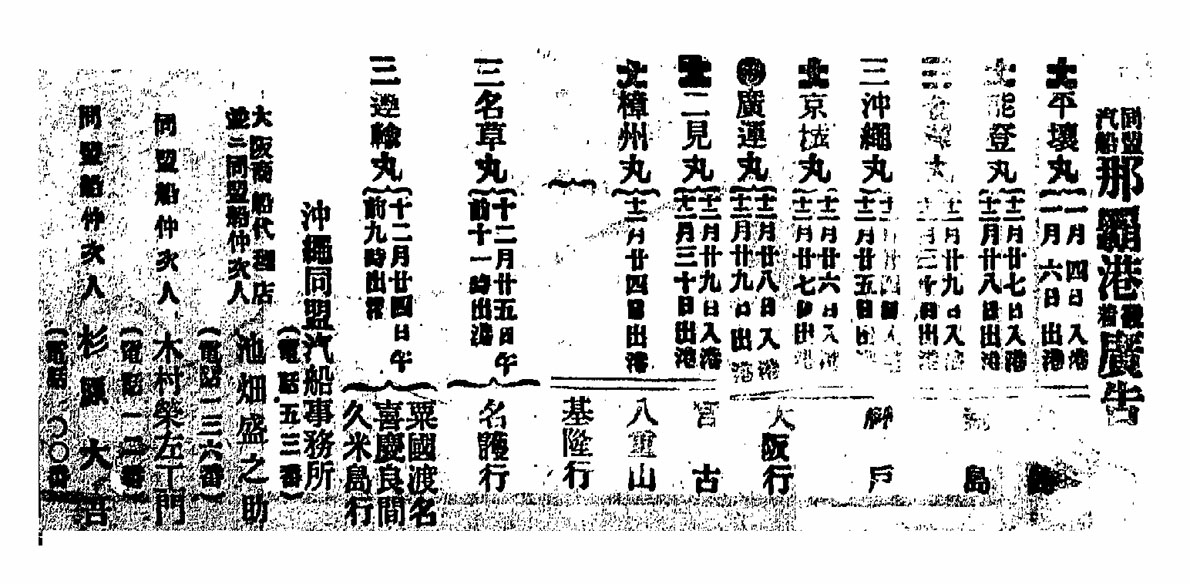 同盟汽船那覇港發着廣告
平壤丸 一月四日入港 一月六日出港
能登丸 十二月廿七日入港 十二月廿八日出港
十二月廿九日入港 十二月三十日出港
三 沖繩丸 十二月廿五日出港
京城丸 十二月廿六日入 十二月廿七日出港
廣運丸 十二月廿八日入港 十二月廿九日出港
二見丸 十二月廿九日入港 十二月三十日出港
樟州丸 十二月廿四日出港
鹿兒島
神戶
大阪行
宮古
八重山
基隆行
三 名草丸 十二月廿五日午前十一時出港 名護行
三 運輸丸 十二月廿四日午前九時出港 粟國渡名喜慶良間久米島行
沖繩同盟汽船事務所
(電話五三番)
大阪商船代理店
並ニ同盟船仲次人 池畑盛之助
(電話一三六番)
同盟船仲次人 木村榮左工門
(電話一一二番)
同盟船仲次人 杉原大
(電話一〇〇番)